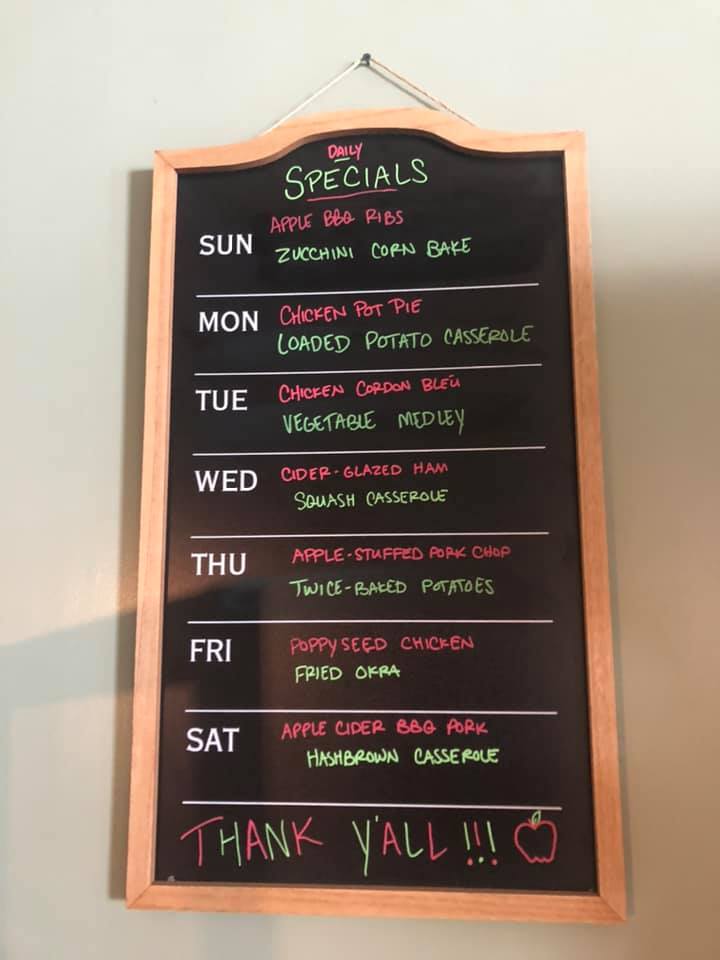 DAILY
SPECIALS
SUN
APPLE BBQ RIBS
ZUCCHINI CORN BAKE
MON
CHICKEN POT PIE
LOADED POTATO CASSEROLE
TUE
CHICKEN CORDON BLEU
VEGETABLE MEDLEY
WED
CIDER-GLAZED HAM
SQUASH CASSEROLE
THU
APPLE-STUFFED PORK CHOP
TWICE-BAKED POTATOES
FRI
POPPYSEED CHICKEN
FRIED OKRA
SAT
APPLE CIDER BBQ PORK
HASHBROWN CASSEROLE
THANK Y'ALL!!!